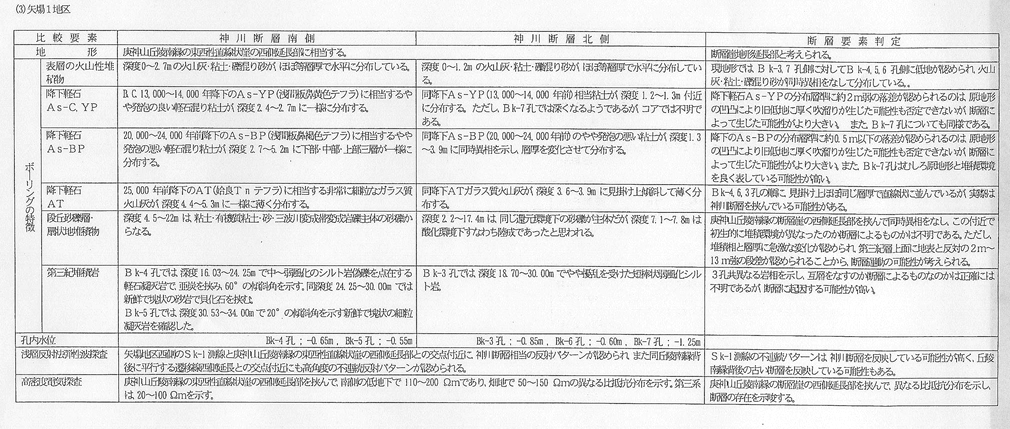 (3)矢場1地区
比較要素 神川断層南側 神川断層北側 断層要素判定
地形 庚申山丘陵南縁の東西性直線状崖の西側延長部に相当する。 断層崖地形延長部と考えられる。
ボーリングの特徴
表層の火山性堆積物
深度0～2.7mの火山灰・粘土・礫混り砂が、ほぼ等層厚で水平に分布している。
深度0～1.2mの火山灰・粘土・礫混り砂が、ほぼ等層厚で水平に分布している。
現地形ではBk-3,7孔側に対してBk-4,5,6孔側に低地が認められ、火山灰・粘土・礫混り砂が同時異相をなして分布している。
降下軽石
As-C,YP
B.C.13,000～14,000年前降下のAs-YP(浅間板鼻黄色テフラ)に相当するやや発泡の良い軽石混り粘土が、深度2.4～2.7mに一様に分布する。
同降下As-YP(13,000～14,000年前)相当粘土が、深度1.2～1.3m付近に分布する。ただし、Bk-7孔では深くなるようであるが、コアでは不明である。
降下軽石As-YPの分布深度に約2m弱の落差が認められるのは、原地形の凹凸により旧低地に厚く吹溜りが生じた可能性も否定できないが、断層によって生じた可能性がより大きい。また、Bk-7孔についても同様である。
降下軽石
As-BP
20,000～24,000年前降下のAs-BP(浅間板鼻褐色テフラ)に相当するやや発泡の悪い軽石混り粘土が、深度2.7～5.2mに下部・中部・上部三層が一様に分布する。
同降下As-BP(20,000～24,000年前)のやや発泡の悪い粘土が、深度1.3～3.9mに同時異相を示し、層厚を変化させて分布する。
降下のAs-BPの分布深度に約0.5m以下の落差が認められるのは、原地形の凹凸により旧低地に厚く吹溜りが生じた可能性も否定できないが、断層によって生じた可能性がより大きい。また、Bk-7孔はむしろ原地形と堆積環境を良く表している可能性が高い。
降下軽石
AT
25,000年前降下のAT(姶良Tnテフラ)に相当する非常に細粒なガラス質火山灰が、深度4.4～5.3mに一様に薄く分布する。
同降下ATガラス質火山灰が、深度3.6～3.9mに見掛け上傾斜して薄く分布する。
Bk-4,6,3孔の順に、見掛け上ほぼ同じ層厚で直線状に並んでいるが、実際は神川断層を挟んでいる可能性がある。
段丘砂礫層・層状地堆積物
深度4.5～22mは、粘土・有機質粘土・砂・三波川変成帯変成岩礫主体の砂礫からなる。
深度2.2～17.4mは、同じ還元環境下の砂礫が主体だが、深度7.1～7.8mは酸化環境下すなわち陸成であったと思われる。
庚申山丘陵南縁の断層崖の西側延長部を挟んで同時異相をなし、この付近で初生的に堆積環境が異なったのか断層によるものかは不明である。ただし、堆積相と層厚に急激な変化が認められ、第三紀層上面に地表と反対の2m～13m強の段差が認められることから、断層運動の可能性が考えられる。
第三紀堆積岩
Bk-4孔では、深度16.03～24.25mで中～弱風化のシルト岩偽礫を点在する軽石凝灰岩で、亜炭を挟み、60°の傾斜角を示す。同深度24.25～30.00mでは新鮮で塊状の砂岩で貝化石を挟む。
Bk-5孔では、深度30.53～34.00mで20°の傾斜角を示す新鮮で塊状の細粒凝灰岩を確認した。
Bk-3孔では、深度18.70～30.00mでやや擾乱を受けた短棒状弱風化シルト岩。
3孔共異なる岩相を示し、互層をなすのか断層によるものなのかは正確には不明であるが、断層に起因する可能性が高い。
孔内水位 Bk-4孔;-0.65m, Bk-5孔;-0.55m Bk-3孔;-0.85m, Bk-6孔;-0.60m, Bk-7孔;-1.25m
浅層反射法弾性波探査
矢場地区西側のSk-1測線と庚申山丘陵南縁の東西性直線状崖の西側延長部との交点付近に、神川断層相当の反射パターンが認められ、また同丘陵南縁背後に平行する遷移線西側延長との交点付近にも高角度の不連続反射パターンが認められる。
Sk-1測線の不連続パターンは、神川断層を反映している可能性が高く、丘陵南縁背後の古い断層を反映している可能性もある。
高密度電気探査
庚申山丘陵南縁の東西性直線状崖の西側延長部を挟んで、南側の低地下で110～200Ωmであり、畑地で50～150Ωmの異なる比抵抗分布を示す。第三系は、20～100Ωmを示す。
庚申山丘陵南縁の断層崖の西側延長部を挟んで、異なる比抵抗分布を示し、断層の存在を示唆する。